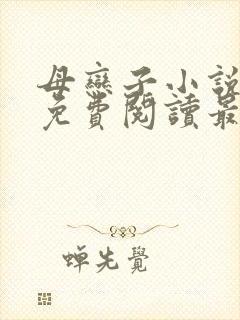 母戀子小說
免費閱讀最
蝉先覺